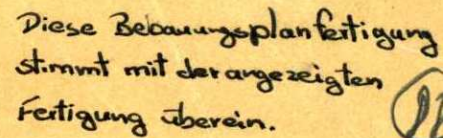 Diese Bebauungsplanfertigung
stimmt mit der angezeigten
Fertigung überein.